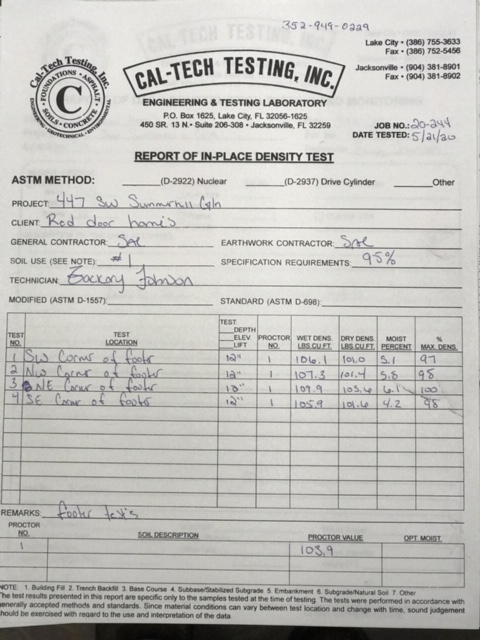 352-949-0229
Lake City • (386) 755-3633
Fax • (386) 752-5456
Jacksonville • (904) 381-8901
Fax • (904) 381-8902
Cal-Tech Testing, Inc.
• FOUNDATIONS • ASPHALT •
SOILS • CONCRETE
ENGINEERING • GEOTECHNICAL • ENVIRONMENTAL
C
CAL-TECH TESTING, INC.
ENGINEERING & TESTING LABORATORY
P.O. Box 1625, Lake City, FL 32056-1625
450 SR. 13 N. • Suite 206-308 • Jacksonville, FL 32259
JOB NO.: 20-244
DATE TESTED: 5/21/20
REPORT OF IN-PLACE DENSITY TEST
ASTM METHOD: (D-2922) Nuclear (D-2937) Drive Cylinder Other
PROJECT: 447 SW Summerhill Gln
CLIENT: Red door home's
GENERAL CONTRACTOR: SAC EARTHWORK CONTRACTOR: SAC
SOIL USE (SEE NOTE): #1 SPECIFICATION REQUIREMENTS: 95%
TECHNICIAN: Zackary Johnson
MODIFIED (ASTM D-1557): STANDARD (ASTM D-698):
TEST NO. TEST LOCATION TEST DEPTH ELEV LIFT PROCTOR NO. WET DENS. LBS.CU.FT. DRY DENS. LBS.CU.FT. MOIST PERCENT % MAX. DENS.
1 SW Corner of footer 12" 1 106.1 101.0 5.1 97
2 NW Corner of footer 12" 1 107.3 101.4 5.8 98
3 NE Corner of footer 12" 1 109.9 103.6 6.1 100
4 SE Corner of footer 12" 1 105.9 101.6 4.2 98
REMARKS: footer test's
PROCTOR NO. SOIL DESCRIPTION PROCTOR VALUE OPT. MOIST.
1 103.9
NOTE: 1. Building Fill 2. Trench Backfill 3. Base Course 4. Subbase/Stabilized Subgrade 5. Embankment 6. Subgrade/Natural Soil 7. Other
The test results presented in this report are specific only to the samples tested at the time of testing. The tests were performed in accordance with
generally accepted methods and standards. Since material conditions can vary between test location and change with time, sound judgement
should be exercised with regard to the use and interpretation of the data